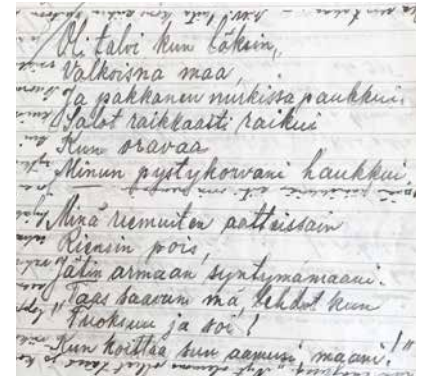 Oli talvi kun läksin,
Valkoisna maa,
Ja pakkanen nurkissa paukkui.
Salot raikkaasti raikui
Kun oravaa
Minun pystykorvani haukkui.
Minä riemuiten aatteissain
Riensin pois,
Jätin armaan syntymämaani.
"Taas saavun mä, lehdet kun
Tuoksuu ja soi!
Kun koittaa sun aamusi, maani!"